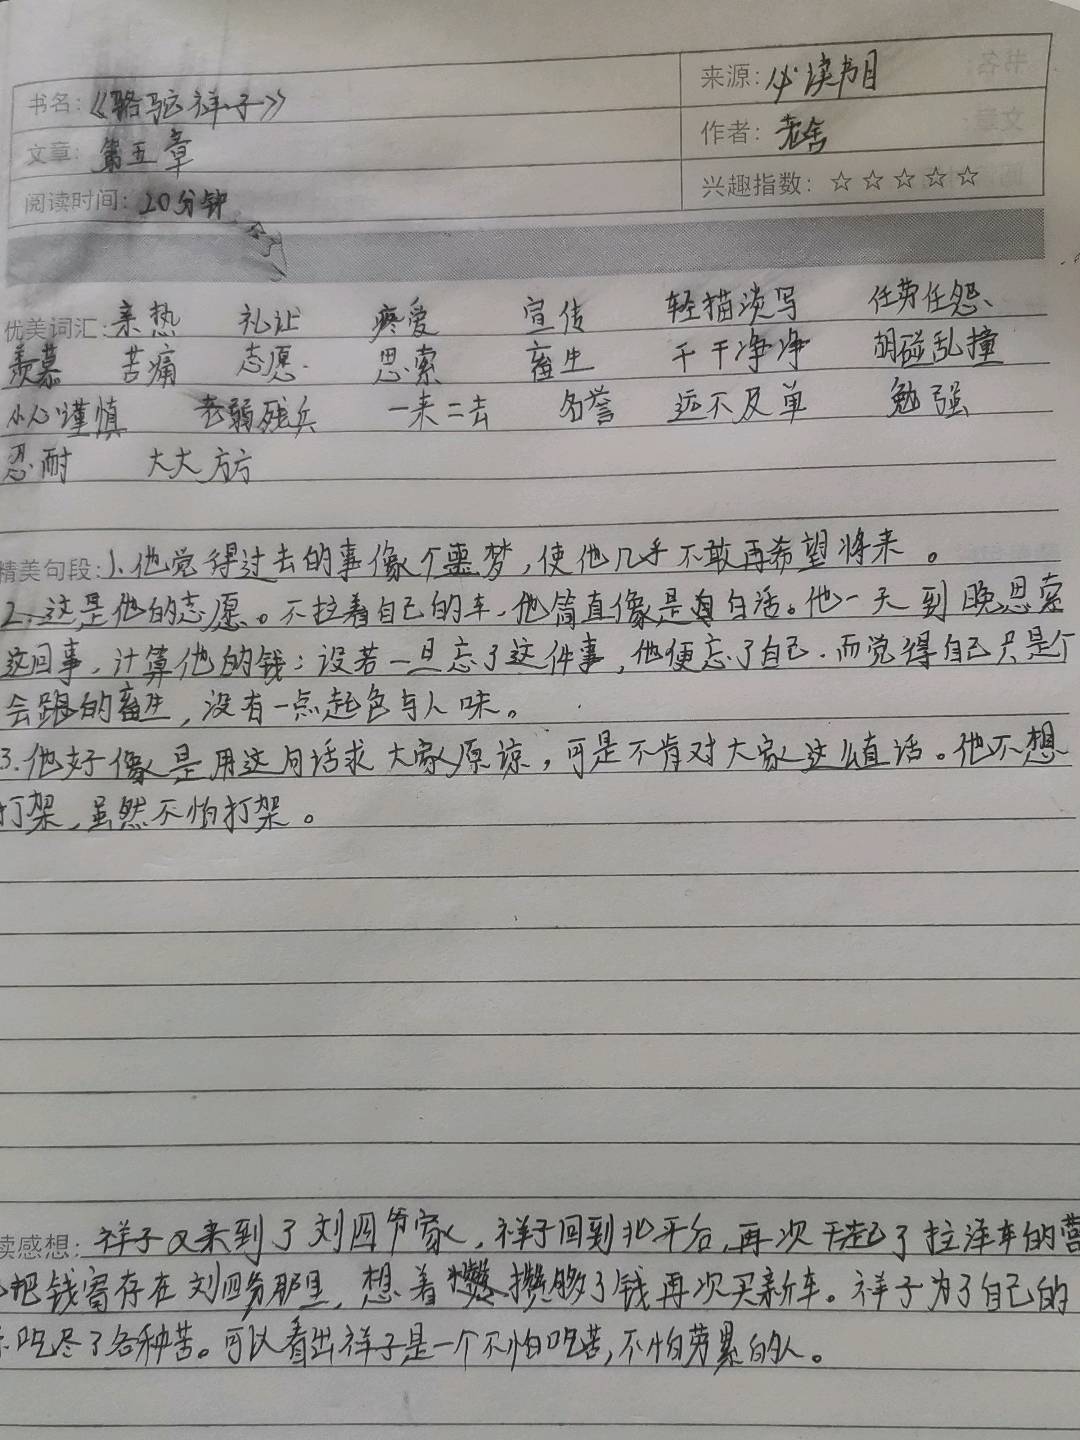 书名：《骆驼祥子》 来源：必读书目
文章：第五章 作者：老舍
阅读时间：20分钟 兴趣指数：☆☆☆☆☆
优美词汇：亲热 礼让 疼爱 宣传 轻描淡写 任劳任怨
羡慕 苦痛 志愿 思索 畜生 干干净净 胡碰乱撞
小心谨慎 老弱残兵 一来二去 名誉 远不及单 勉强
忍耐 大大方方
精美句段：1.他觉得过去的事像个噩梦，使他几乎不敢再希望将来。
2.这是他的志愿。不拉着自己的车，他简直像是白活。他一天到晚思索
这回事，计算他的钱；设若一旦忘了这件事，他便忘了自己，而觉得自己只是个
会跑的畜生，没有一点起色与人味。
3.他好像是用这句话求大家原谅，可是不肯对大家这么直话。他不想
打架，虽然不怕打架。
读感想：祥子又来到了刘四爷家，祥子回到北平后，再次干起了拉洋车的营
把钱寄存在刘四爷那里，想着攒够了钱再次买新车。祥子为了自己的
吃尽了各种苦。可以看出祥子是一个不怕吃苦，不怕劳累的人。